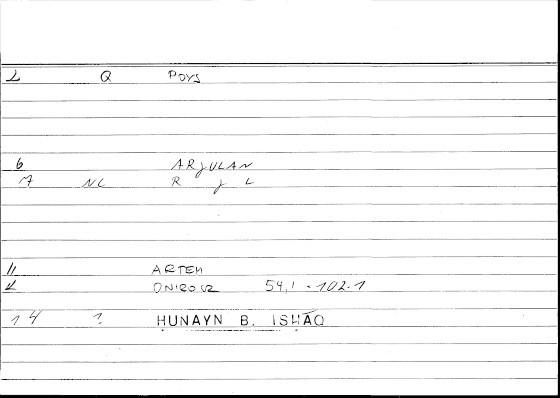 2 Q POYS
6 ARJULAN
17 NC R J L
11 ARTEM
12 ONIROCR 54,1 - 102.1
14 ? ḤUNAYN B. ISḤĀQ